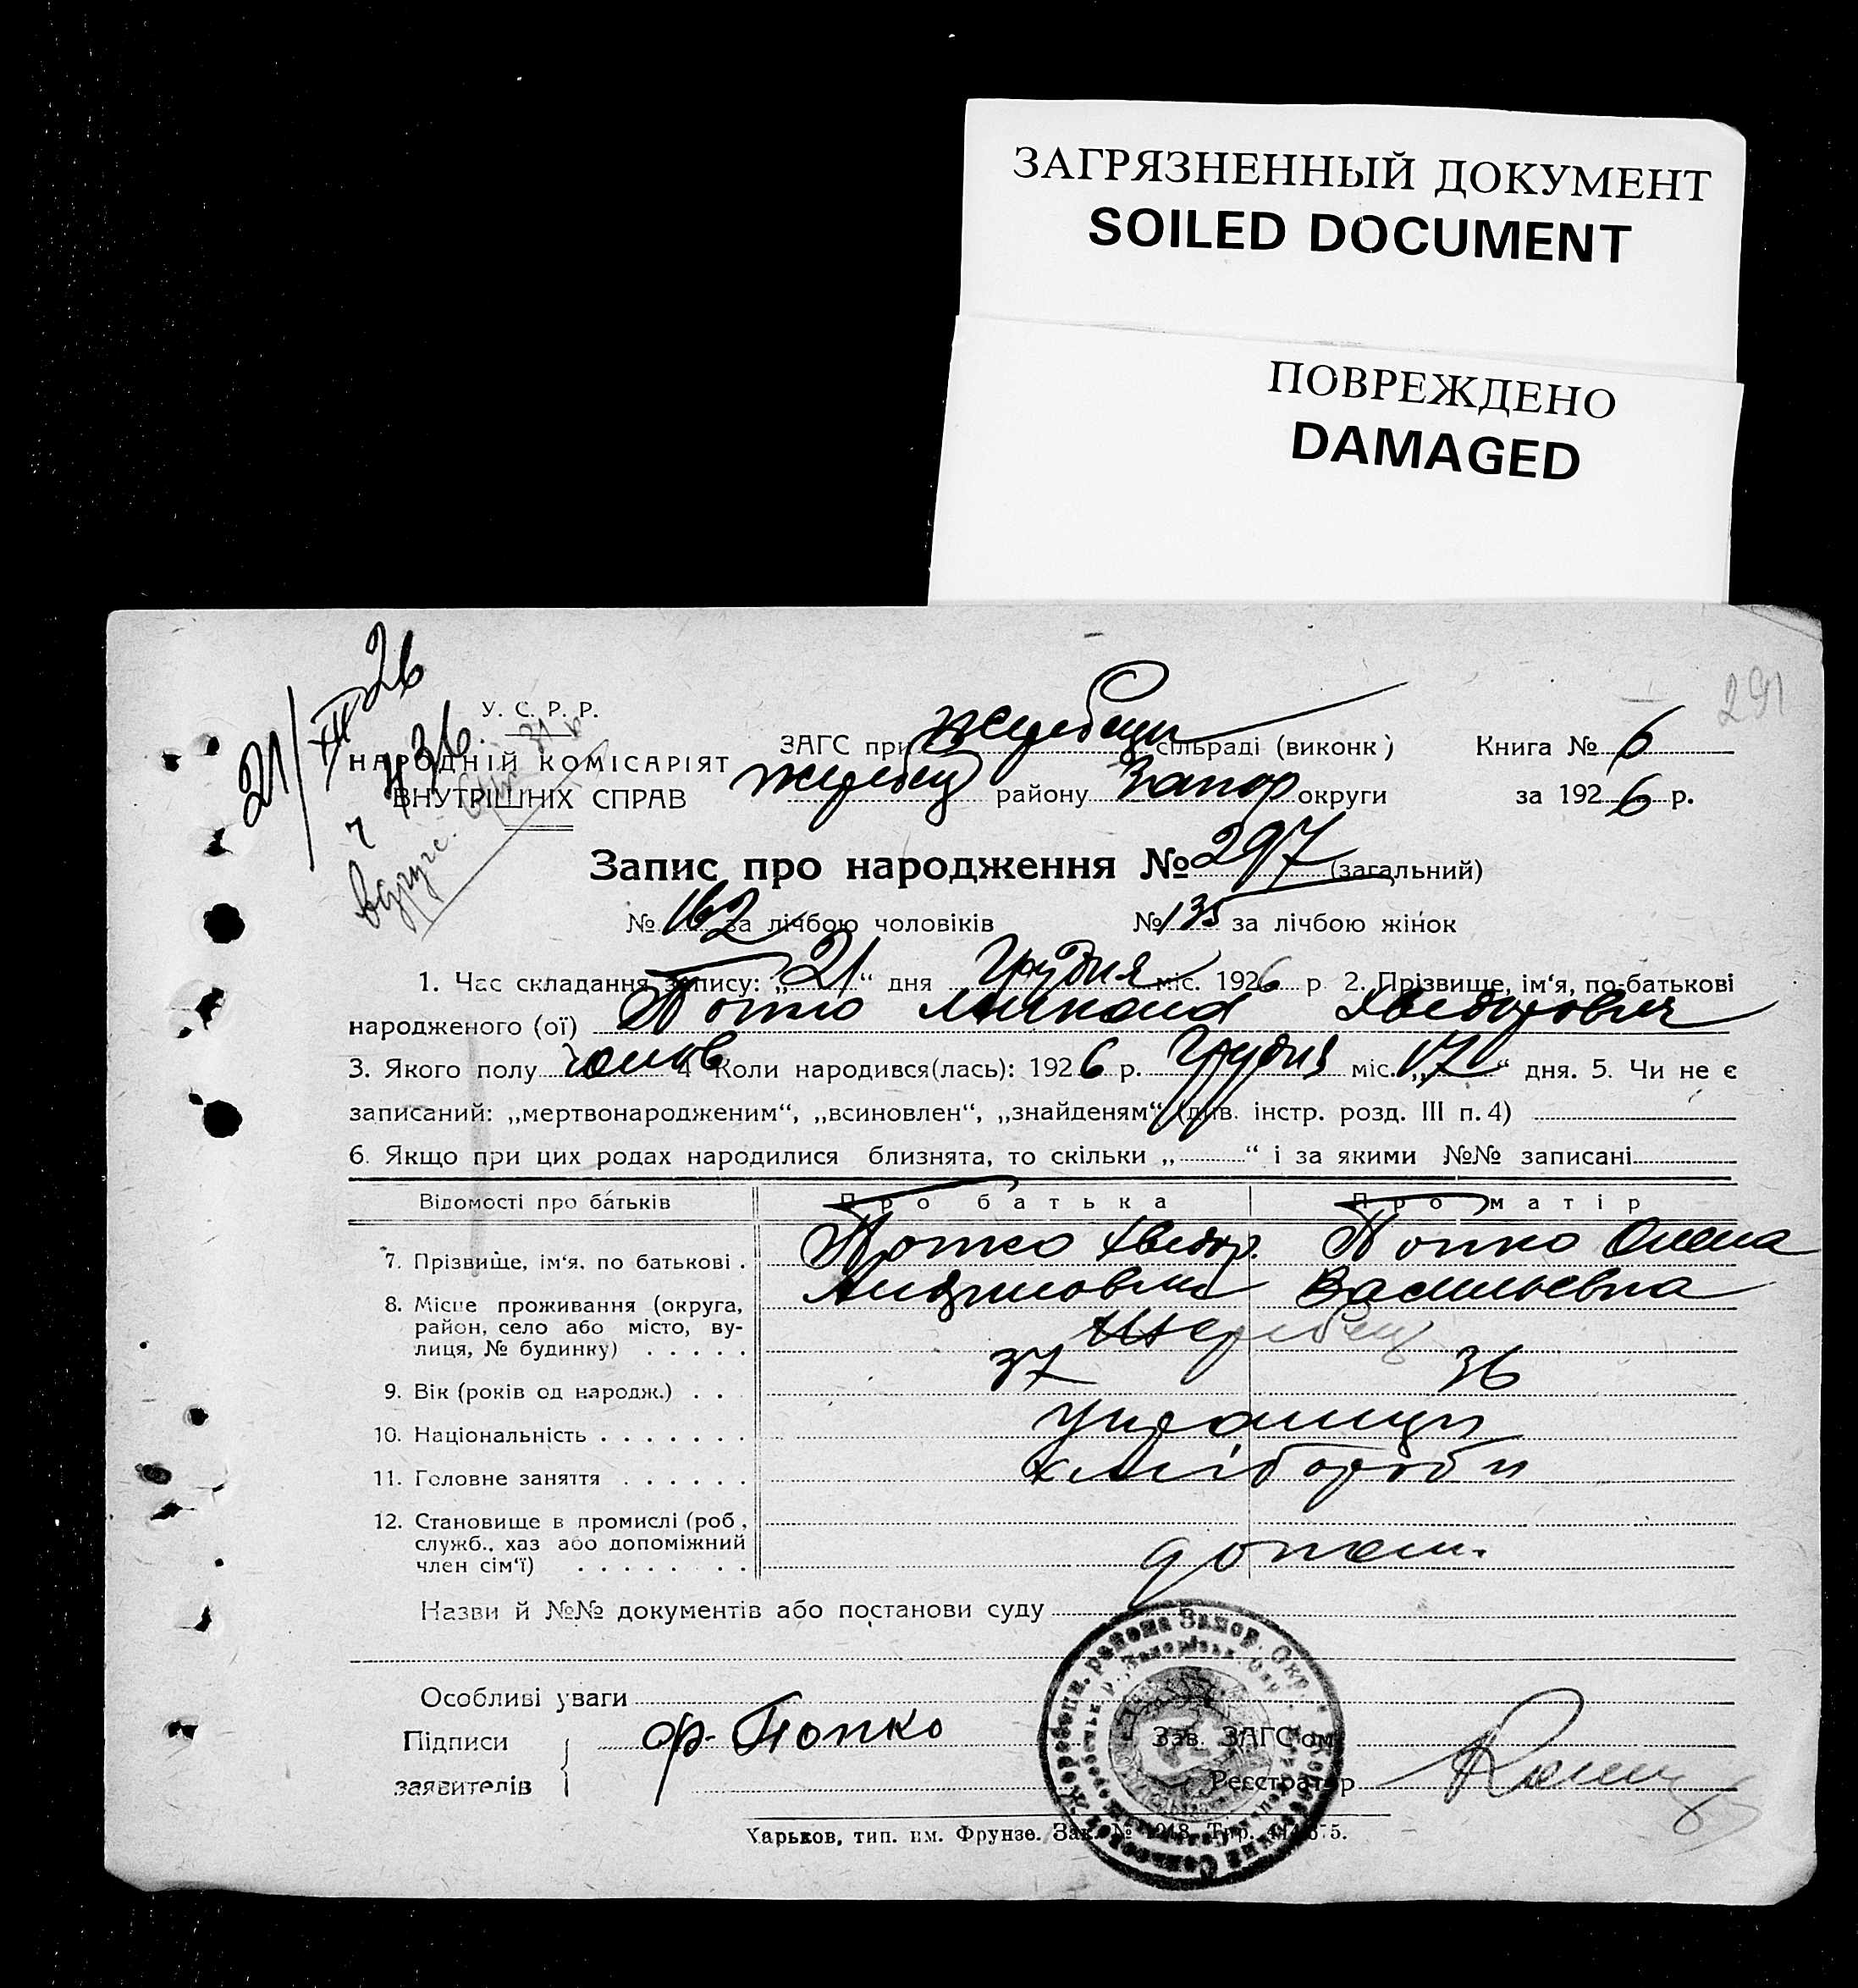 ЗАГРЯЗНЕННЫЙ ДОКУМЕНТ
SOILED DOCUMENT
ПОВРЕЖДЕНО
DAMAGED
291
21/XII 26
У. С. Р. Р.
НАРОДНІЙ КОМІСАРІЯТ
ВНУТРІШНІХ СПРАВ
ЗАГС при Жеребецк сільраді (виконк) Книга № 6
Жеребец району Запор округи за 1926 р.
Запис про народження № 297 (загальний)
№ 162 за лічбою чоловіків № 135 за лічбою жінок
1. Час складання запису: „21“ дня Грудня міс. 1926 р. 2. Прізвище, ім‘я, по-батькові
народженого (ої) Попко Хведорович
3. Якого полу чолов 4 Коли народився(лась): 1926 р. Грудня міс. „17“ дня. 5. Чи не є
записаний: „мертвонародженим“, „всиновлен“, „знайденям“ (див. інстр. розд. III п. 4)
6. Якщо при цих родах народилися близнята, то скільки „ “ і за якими №№ записані
Відомості про батьків Про батька Про матір
7. Прізвище, ім‘я, по батькові . Попко Хведор. Попко Олена
Васильевна
8. Місце проживання (округа,
район, село або місто, ву-
лиця, № будинку) . . . . . Жеребец
9. Вік (років од народж.) . . . 37 36
10. Національність . . . . . . . Украинци
11. Головне заняття . . . . . . хлібороби
12. Становище в промислі (роб.,
служб., хаз або допоміжний
член сім‘ї) . . . . . . . допом.
Назви й №№ документів або постанови суду
Особливі уваги
Підписи Ф. Попко Зав. ЗАГС‘ом
заявителів Реєстратор
Харьков, тип. им. Фрунзе. Зак. № 1218. Тир.